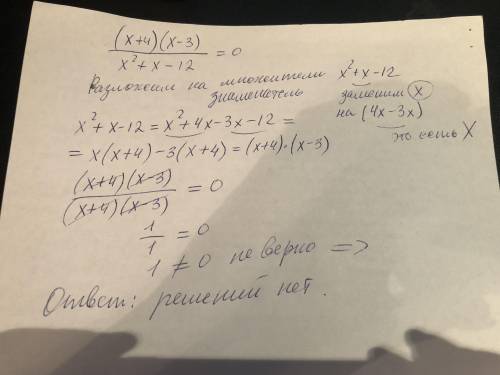 (x+4)(x-3) / x²+x-12 = 0
Разложим на множители знаменатель
x²+x-12
заменим x
на (4x-3x)
это есть x
x²+x-12 = x²+4x-3x-12 =
= x(x+4)-3(x+4) = (x+4)·(x-3)
(x+4)(x-3) / (x+4)(x-3) = 0
1/1 = 0
1 ≠ 0 не верно =>
Ответ: решений нет.